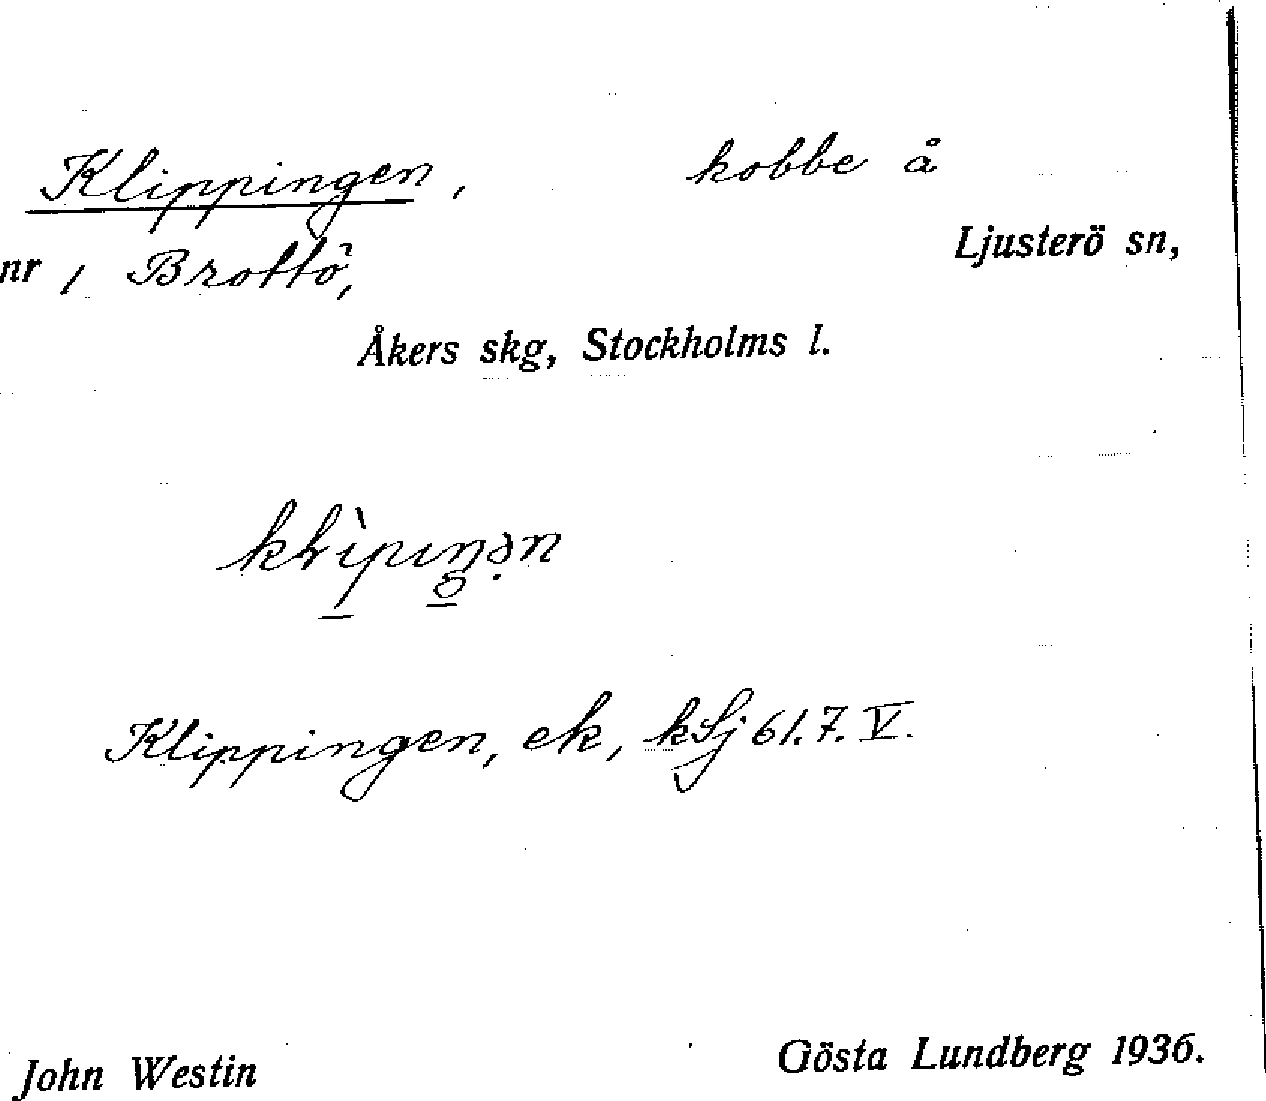 Klippingen, kobbe å
Ljusterö sn,
nr 1 Brottö,
Åkers skg, Stockholms l.
Klippingen, ek, kSj 61.7. V.
John Westin Gösta Lundberg 1936.